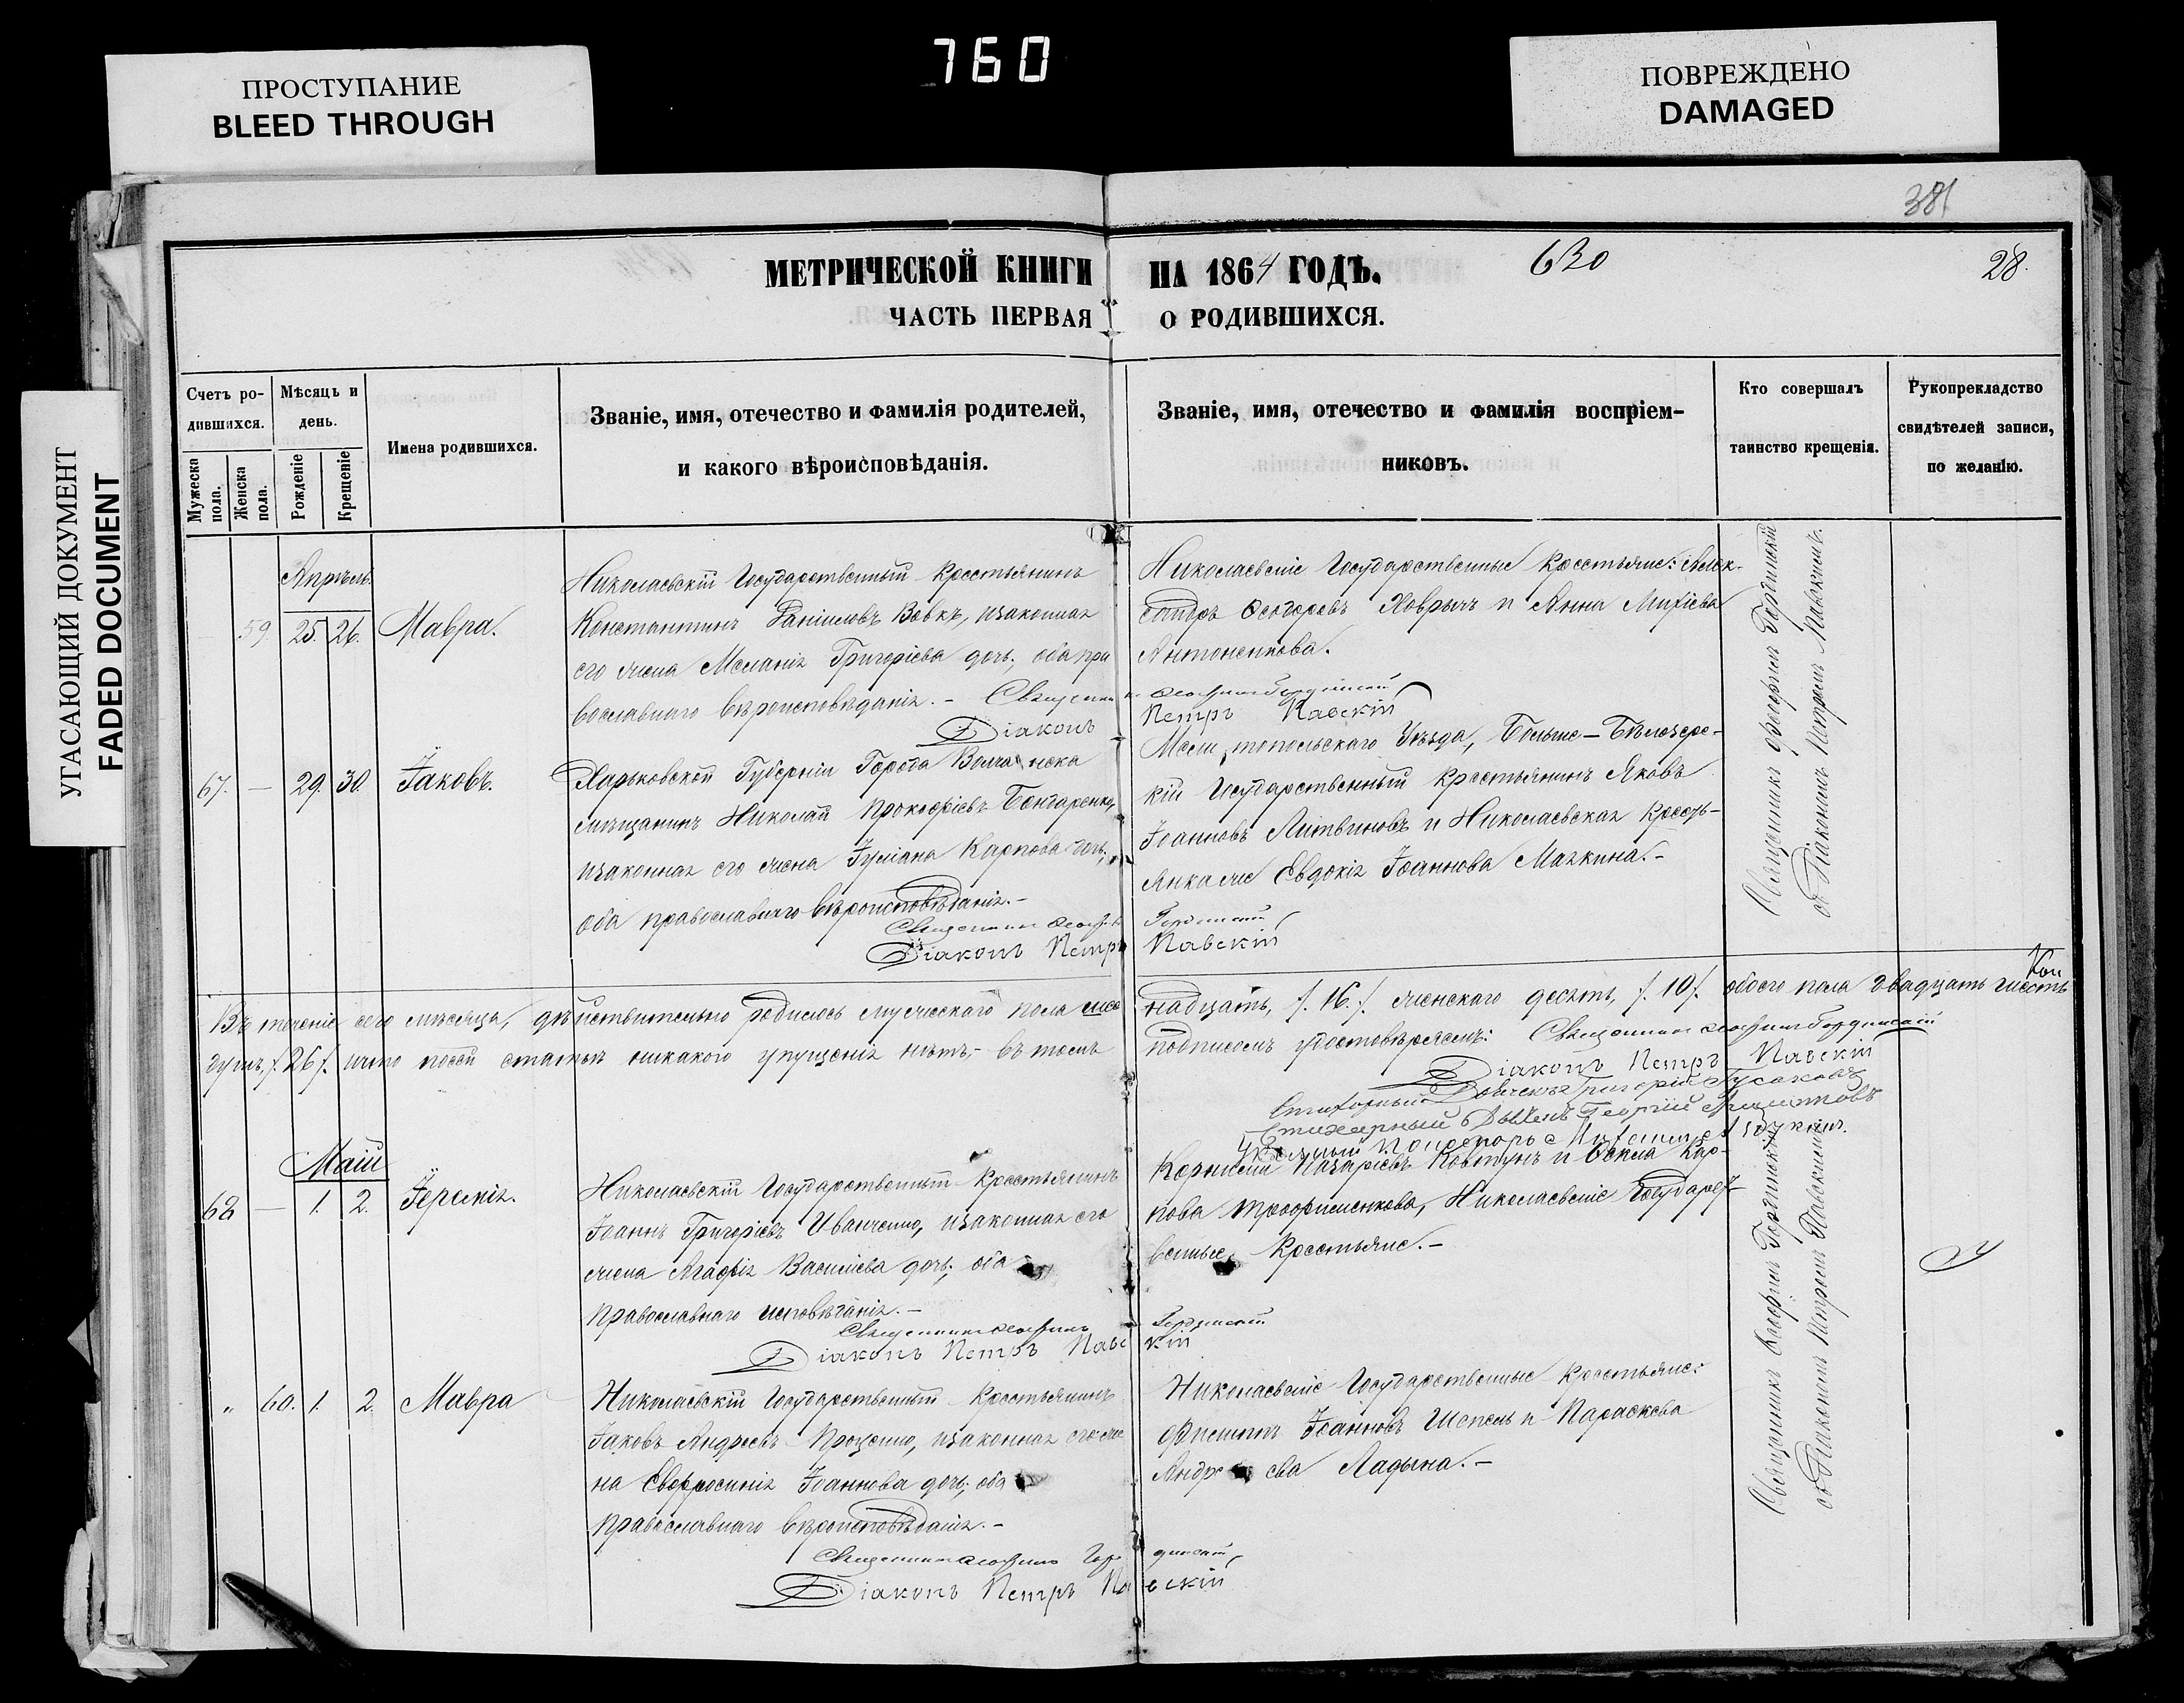 760
ПРОСТУПАНИЕ
BLEED THROUGH
ПОВРЕЖДЕНО
DAMAGED
УГАСАЮЩИЙ ДОКУМЕНТ
FADED DOCUMENT
381
МЕТРИЧЕСКОЙ КНИГИ НА 1864 ГОДЪ.
630
28.
ЧАСТЬ ПЕРВАЯ О РОДИВШИХСЯ.
Счетъ ро-
дившихся.
Мужеска пола.
Женска пола.
Мѣсяцъ и
день.
Рожденіе
Крещеніе
Имена родившихся.
Званіе, имя, отечество и фамилія родителей,
и какого вѣроисповѣданія.
Званіе, имя, отечество и фамилія воспріем-
никовъ.
Кто совершалъ
таинство крещенія.
Рукоприкладство
свидѣтелей записи,
по желанію.
Апрѣль
59. 25. 26. Мавра.
Николаевскій Государственный Крестьянинъ
Константинъ Даніиловъ Вовкъ, и законная
его жена Меланія Григорієва дочь, оба пра
вославнаго вѣроисповѣданія. – Священникъ
Діаконъ Петръ Павскій
Николаевскіе Государственные Крестьяне: Алек-
сандръ Ховрычъ и Анна
Антоненкова.
67. — 29. 30. Іаковъ.
Харьковской Губерніи Города Волчанска
мѣщанинъ Николай Прокофіевъ Бондаренко,
и законная его жена Іуліана Карпова дочь,
оба православнаго вѣроисповѣданія. –
Діаконъ Петръ Павскій
Мелитопольскаго Уѣзда, Больше-Бѣлозерс-
кій Государственный Крестьянинъ Яковъ
Іоанновъ Литвиновъ и Николаевская Кресть-
янка Евдокія Іоаннова Мазкина. –
Священникъ Феофилъ Гординскій
съ Діакономъ Петромъ Павскимъ.
Въ теченіе сего мѣсяца, дѣйствительно родилось мужескаго пола шес надцать, /.16./ женскаго десять, /.10/. обоего пола двадцать шесть
душъ, /.26/. и что по сей статьи никакого упущенія нѣтъ, – въ томъ подписомъ удостовѣряемъ: Священникъ Феофилъ Гординскій
Діаконъ Петръ Павскій
Стихарный Дьячекъ Григорій Гусаковъ
Стихарный Дьячекъ Георгій
Маій
68 — 1. 2. Іеремія.
Николаевскій Государственный Крестьянинъ
Іоаннъ Григорієвъ Иванченко, и законная его
жена Агафія Василіева дочь, оба
Православнаго исповѣданія. –
Діаконъ Петръ Павскій
Корнилій Назарієвъ Ковтунъ и Фекла Кар-
пова Трофименкова, Николаевскіе Государст-
венные Крестьяне. –
„ 60. 1. 2. Мавра
Николаевскій Государственный Крестьянинъ
Іаковъ Андреевъ Проценко, и законная его же
на Евфросинія Іоаннова дочь, оба
Православнаго вѣроисповѣданія. –
Діаконъ Петръ Павскій
Николаевскіе Государственные Крестьяне:
Филиппъ Іоанновъ Шепель и Параскева
Андреева Ладына. –
Священникъ Феофилъ Гординскій
съ Діакономъ Петромъ Павскимъ